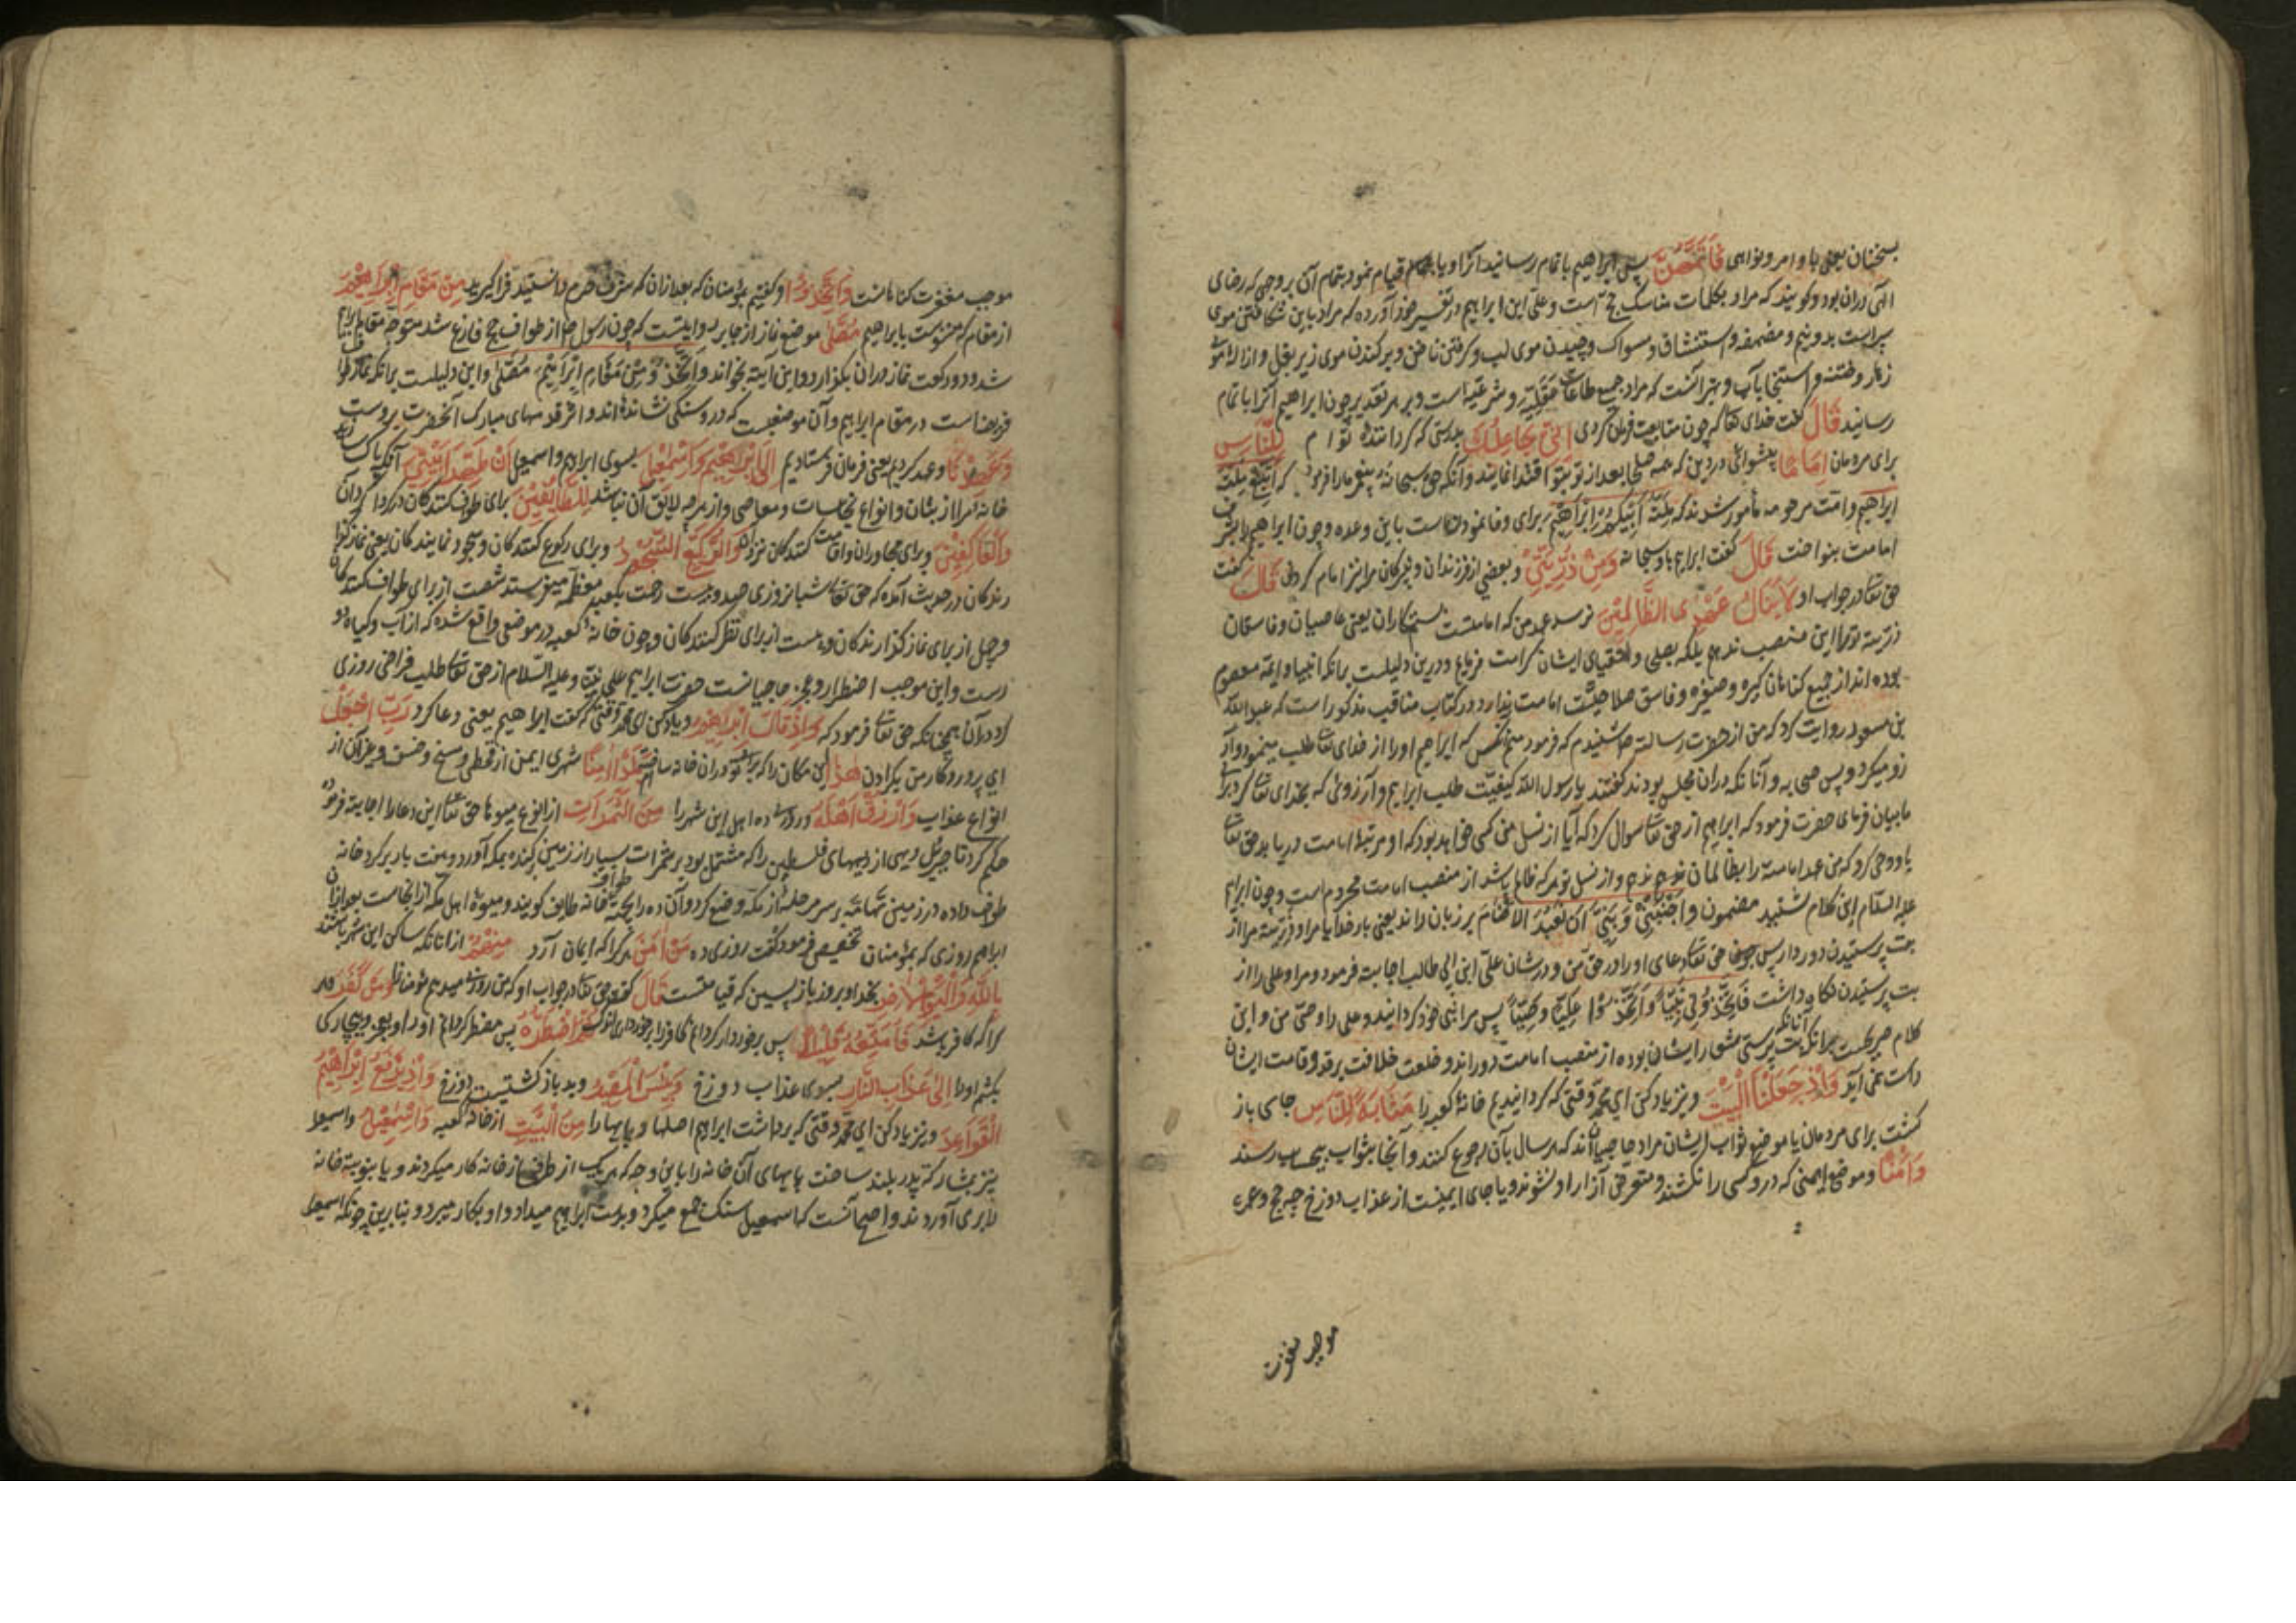 بسخنان یعنی باوامر و نواهی فَاَتَمَّهُنَّ پس ابراهیم باتمام رسانید آنرا و یا قیام نمود بتمام آن بر وجهی که رضای
الهی دران بود و کویند که مراد بکلمات مناسک حج است و علی ابن ابراهیم در تفسیر خود آورده که مراد باین شکافتن موی
سراست بدو نیم و مضمضه و استنشاق و مسواک و چیدن موی لب و کرفتن ناخن و برکندن موی زیر بغل و ازاله موی
زهار و ختنه و استنجا بآب و بهتر آنست که مراد جمیع طاعات عقلیه و شرعیه است و بر هر تقدیر چون ابراهیم آنرا باتمام
رسانید قَالَ کفت خدای تعا که چون متابعت فرمان کردی اِنِّی جَاعِلُكَ بدرستی که کرداننده توام لِلنَّاسِ
برای مردمان اِمَامًا پیشوائی در دین که همه صلحا بعد از تو بتو اقتدا نمایند و آنکه حق سبحانه پیغمبر ما را فرمود که اتبع ملة
ابراهیم و امت مرحومه مأمور شدند که مِلَّةَ اَبِیكُمْ اِبْرَاهِیمَ برای وفا نمودنست باین وعده و چون ابراهیم را بشرف
امامت بنواخت قَالَ کفت ابراهیم با او سبحانه وَمِنْ ذُرِّیَّتِی و بعضی از فرزندان و نبیرکان مرا نیز امام کردانی قَالَ کفت
حق تعا در جواب او لَا یَنَالُ عَهْدِی الظَّالِمِیْنَ نرسد عهد من که امامتست ستمکاران یعنی عاصیان و فاسقان
ذریه ترا این منصب ندهم بلکه بصلحا و اتقیای ایشان کرامت فرمایم و درین دلیلست برانکه انبیا و ایمه معصوم
بوده اند از جمیع کناهان کبیره و صغیره و فاسق صلاحیت امامت ندارد و در کتاب مناقب مذکور است که عبدالله
بن مسعود روایت کرد که من از حضرت رسالت ص شنیدم که فرمود منم آنکس که ابراهیم او را از خدای تعا طلب مینمود و آر
زو میکرد پس صحابه و آنانکه دران مجلس بودند کفتند یا رسول الله کیفیت طلب ابراهیم و آرزوئی که بخدای تعا کرد برای
ما بیان فرمای حضرت فرمود که ابراهیم از حق تعا سوال کرد که آیا از نسل من کسی خواهد بود که او مرتبه امامت دریابد حق تعا
باو وحی کرد که من عهد امامت را بظالمان ندهم و از نسل تو هر که ظالم باشد از منصب امامت محروم است و چون ابراهیم
علیه السلام این کلام شنید مضمون وَاجْنُبْنِی وَبَنِیَّ اَنْ نَعْبُدَ الْاَصْنَامَ بر زبان راند یعنی بار خدایا مرا و ذریه مرا از
بت پرستیدن دور دار پس حق تعا دعای او را در حق من و در شان علی ابن ابی طالب اجابت فرمود و مرا و علی را از
بت پرستیدن نکاه داشت فَاتَّخَذَنِی نَبِیًّا وَاتَّخَذَ عَلِیًّا وَصِیًّا پس مرا نبی خود کردانید و علی را وصی من و این
کلام صریحست برانکه آنانکه بت پرستی شعار ایشان بوده از منصب امامت دوراند و خلعت خلافت بر قد و قامت ایشان
راست نمی آید وَاِذْ جَعَلْنَا الْبَیْتَ و نیز یاد کن ای محمد وقتی که کردانیدیم خانه کعبه را مَثَابَةً لِلنَّاسِ جای باز
کشت برای مردمان یا موضع ثواب ایشان مراد حاجیان اند که هر سال بآن رجوع کنند و آنجا بثواب بیحساب رسند
وَاَمْنًا و موضع ایمنی که در و کسی را نکشند و متعرض آزار او نشوند و یا جای ایمنیست از عذاب دوزخ چه حج و عمره
موجب مغفرت
موجب مغفرت کناهانست وَاتَّخِذُوا و کفتیم بمؤمنان که بعد ازان که شرف حرم دانستید فراکیرید مِنْ مَقَامِ اِبْرَاهِیْمَ
از مقام که منسوبست بابراهیم مُصَلًّی موضع نماز از جابر روایتست که چون رسول ص از طواف حج فارغ شد متوجه مقام ابراهیم
شد و دو رکعت نماز دران بکزارد و این آیت بخواند وَاتَّخِذُوا مِنْ مَقَامِ اِبْرَاهِیْمَ مُصَلًّی و این دلیلست برانکه نماز طواف
فریضه است در مقام ابراهیم و آن موضعیست که در و سنکی نشانده اند و اثر قدمهای مبارک آنحضرت بروست
وَعَهِدْنَا و عهد کردیم یعنی فرمان فرستادیم اِلَی اِبْرَاهِیْمَ وَاِسْمٰعِیْلَ بسوی ابراهیم و اسمعیل اَنْ طَهِّرَا بَیْتِیَ آنکه پاک سازید
خانه مرا از بتان و انواع نجاسات و معاصی و از هرچه لایق آن نباشد لِلطَّائِفِیْنَ برای طواف کنندکان در کرداکرد آن
وَالْعَاكِفِیْنَ و برای مجاوران و اقامت کنندکان نزد او وَالرُّكَّعِ السُّجُوْدِ و برای رکوع کنندکان و سجود نمایندکان یعنی نماز کزا
رندکان در حدیث آمده که حق تعا شبانروزی صد و بیست رحمت بکعبه معظمه میفرستد شصت از برای طواف کنندکان
و چهل از برای نماز کزارندکان و بیست از برای نظر کنندکان و چون خانه کعبه در موضعی واقع شده که از آب و کیاه دو
رست و این موجب اضطرار و عجز حاجیانست حضرت ابراهیم علی نبینا و علیه السلام از حق تعا طلب فراخی روزی
کرد دران همچنانکه حق تعا فرمود که وَاِذْ قَالَ اِبْرَاهِیْمُ و یاد کن ای محمد وقتی که کفت ابراهیم یعنی دعا کرد رَبِّ اجْعَلْ
ای پروردکار من بکردان هٰذَا این مکان را که برای تو دران خانه ساختم بَلَدًا اٰمِنًا شهری ایمن از قحطی و مسخ و خسف و غیر آن از
انواع عذاب وَارْزُقْ اَهْلَهُ و روزی ده اهل این شهر را مِنَ الثَّمَرَاتِ از انواع میوها حق تعا این دعا را اجابت فرمود
حکم کرد تا جبرئیل دیهی از دیههای فلسطین را که مشتمل بود بر ثمرات بسیار از زمین بکنده بمکه آورد و هفت بار بر کرد خانه
طواف داده در زمین تهامه بر سر مرحله از مکه وضع کرد و آن ده را بجهت طواف خانه طایف کویند و میوه اهل مکه ازانجاست بعد ازان
ابراهیم روزی که بمؤمنان تخصیص فرمود کفت روزی ده مَنْ اٰمَنَ هرکرا که ایمان آرد مِنْهُمْ ازانانکه ساکن این شهر باشند
بِاللّٰهِ وَالْیَوْمِ الْاٰخِرِ بخدا و بروز بازپسین که قیامتست قَالَ کفت حق تعا در جواب او که من روزی میدهم مؤمنانرا وَمَنْ كَفَرَ و هر
کرا که کافر باشد فَاُمَتِّعُهُ قَلِیْلًا پس برخوردار کردانم کافر را برخورداری اندک ثُمَّ اَضْطَرُّهُ پس مضطر کردانم او را و بعجز و بیچارکی
بکشم او را اِلٰی عَذَابِ النَّارِ بسوی عذاب دوزخ وَبِئْسَ الْمَصِیْرُ و بد بازکشتیست دوزخ وَاِذْ یَرْفَعُ اِبْرَاهِیْمُ
الْقَوَاعِدَ و نیز یاد کن ای محمد وقتی که برداشت ابراهیم اصلها و پایها را مِنَ الْبَیْتِ از خانه کعبه وَاِسْمٰعِیْلُ و اسمعیل
نیز بمشارکت پدر بلند ساخت پایهای آن خانه را باین وجه که هر یک از طرفی از خانه کار میکردند و یا بنوبت خانه
را برمی آوردند و اصح آنست که اسمعیل سنک جمع میکرد و بدست ابراهیم میداد و او بکار میبرد و بنابرین چونکه اسمعیل